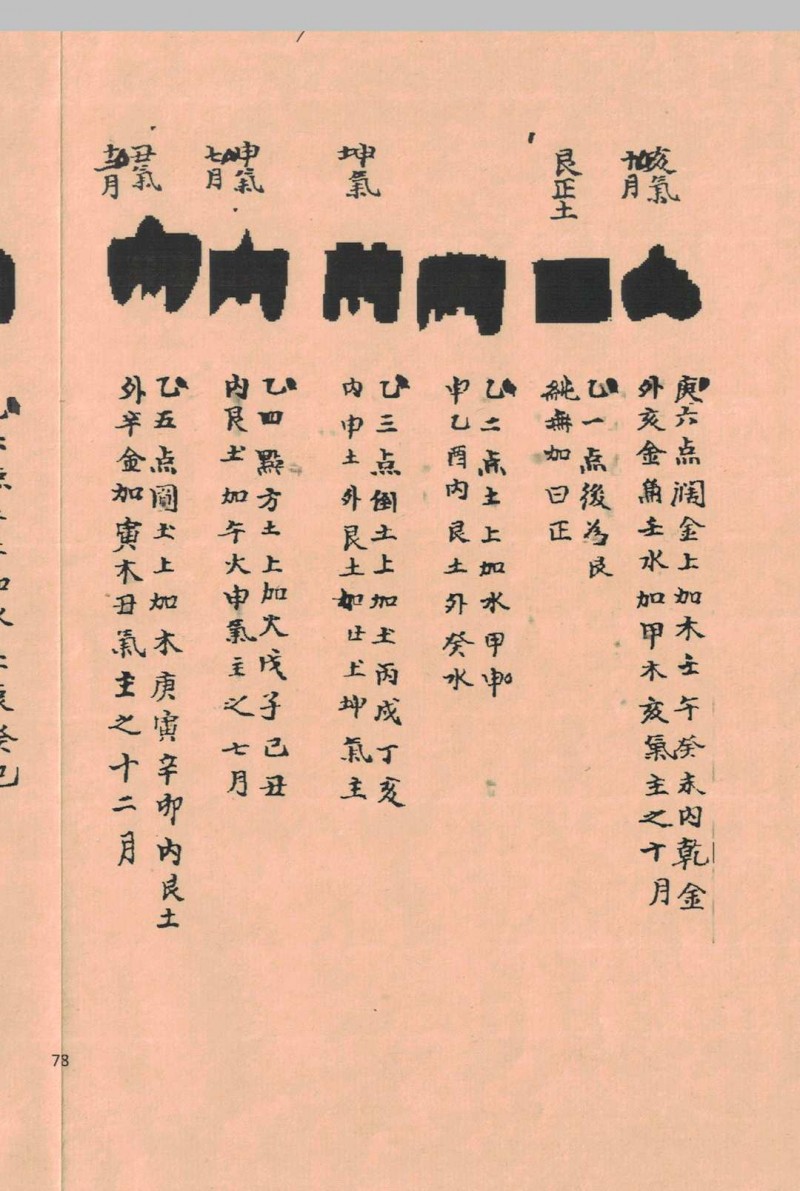 亥氣
十月
庚六点濶金上加木壬午癸未内乾金
外亥金角壬水加甲木亥氣主之十月
艮正土
乙一点後為艮
純無加曰正
乙二点土上加水甲申
乙酉内艮土外癸水
坤氣
乙三点倒土上加土丙戌丁亥
内申土外艮土如土坤氣主
申氣
七月
乙四點方土上加火戊子己丑
内艮土加午火申氣主之七月
丑氣
十二月
乙五点圓土上加木庚寅辛卯内艮土
外辛金加寅木丑氣主之十二月
78